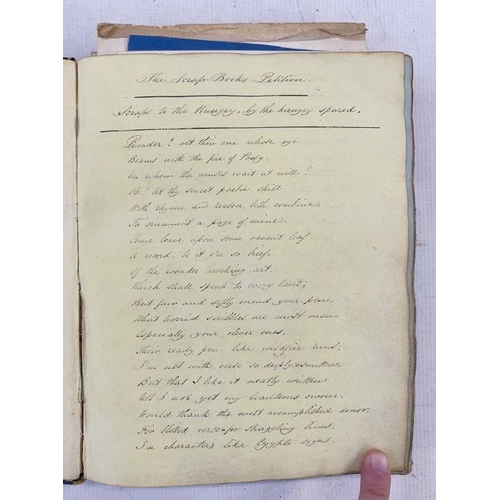 The Scrap Books Petition.
Scraps to the Hungry, by the hungry spared.
Reader! art thou one whose eye
Beams with the fire of Poesy,
On whom the muses wait at will?
Oh! let thy sweet poetic skill
With rhyme and reason both combine,
To ornament a page of mine.
Come leave upon some vacant leaf
A record, be it e'er so brief,
Of the wonder working art,
Which shall speak to every heart;
But fair and softly mend your pen,
What horrid scribbles are most men
Especially your clever ones,
Their ready pen like wildfire runs;
I'm not with verse so deeply smitten,
But that I like it neatly written
And I yet my beauteous owner
Would thank the most accomplished donor
For blotted verse or straggling lines
In characters like Egypts signs.